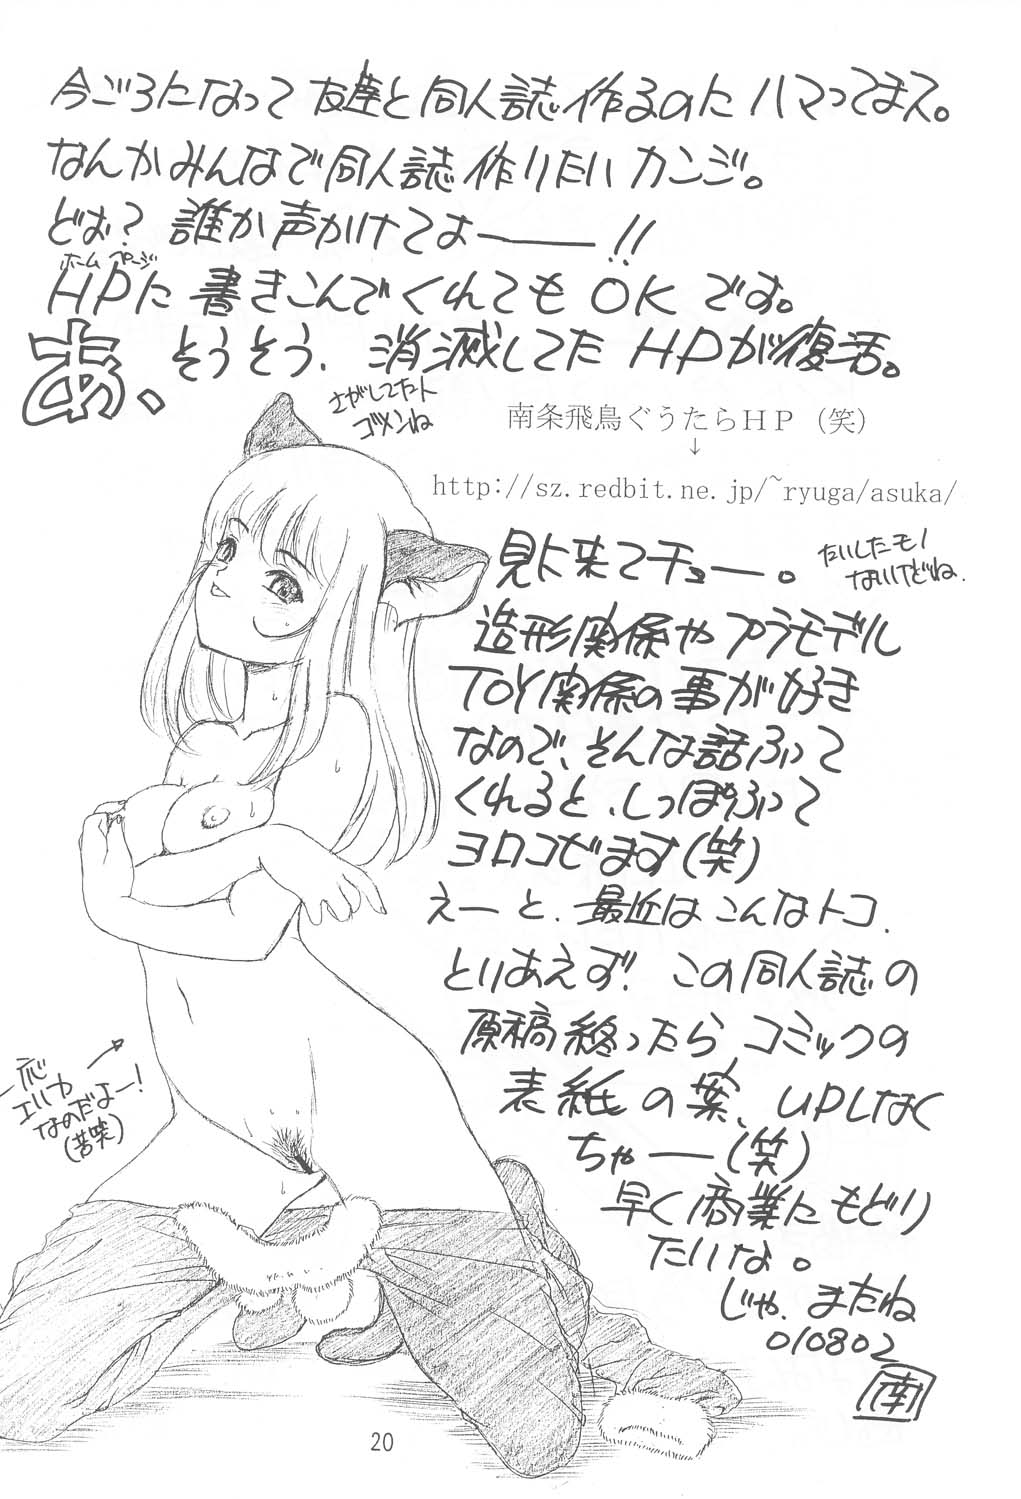 今ごろになって友達と同人誌作るのにハマってまス。
なんかみんなで同人誌作りたいカンジ。
どぉ?誰か声かけてよーーー!!
ホームページ
HPに書きこんでくれてもOKです。
あ、そうそう、消滅してたHPが復活。
さがしてたト
ゴメンね
南条飛鳥ぐうたらHP(笑)
↓
http://sz.redbit.ne.jp/~ryuga/asuka/
見ト来てチョー。
たいしたモノ
ないけどね.
造形関係やプラモデル
TOY関係の事が好き
なので、そんな話ふって
くれると、しっぽふって
ヨロコビます(笑)
えーと、最近はこんなトコ.
とりあえず!この同人誌の
原稿終ったら、コミックの
表紙の案、UPしなく
ちゃーー(笑)
早く商業にもどり
たいな。
じゃ、またね
010802
南
一応
エリカ
なのだよー!
(苦笑)
20